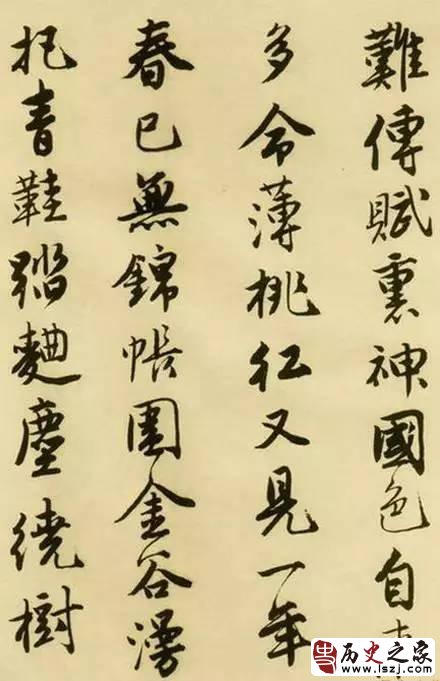 難傳賦裏神國色自
多命薄桃紅又見一年
春已無錦帳圍金谷漫
把青鞋踏麴塵繞樹
历史之家
www.lszj.com